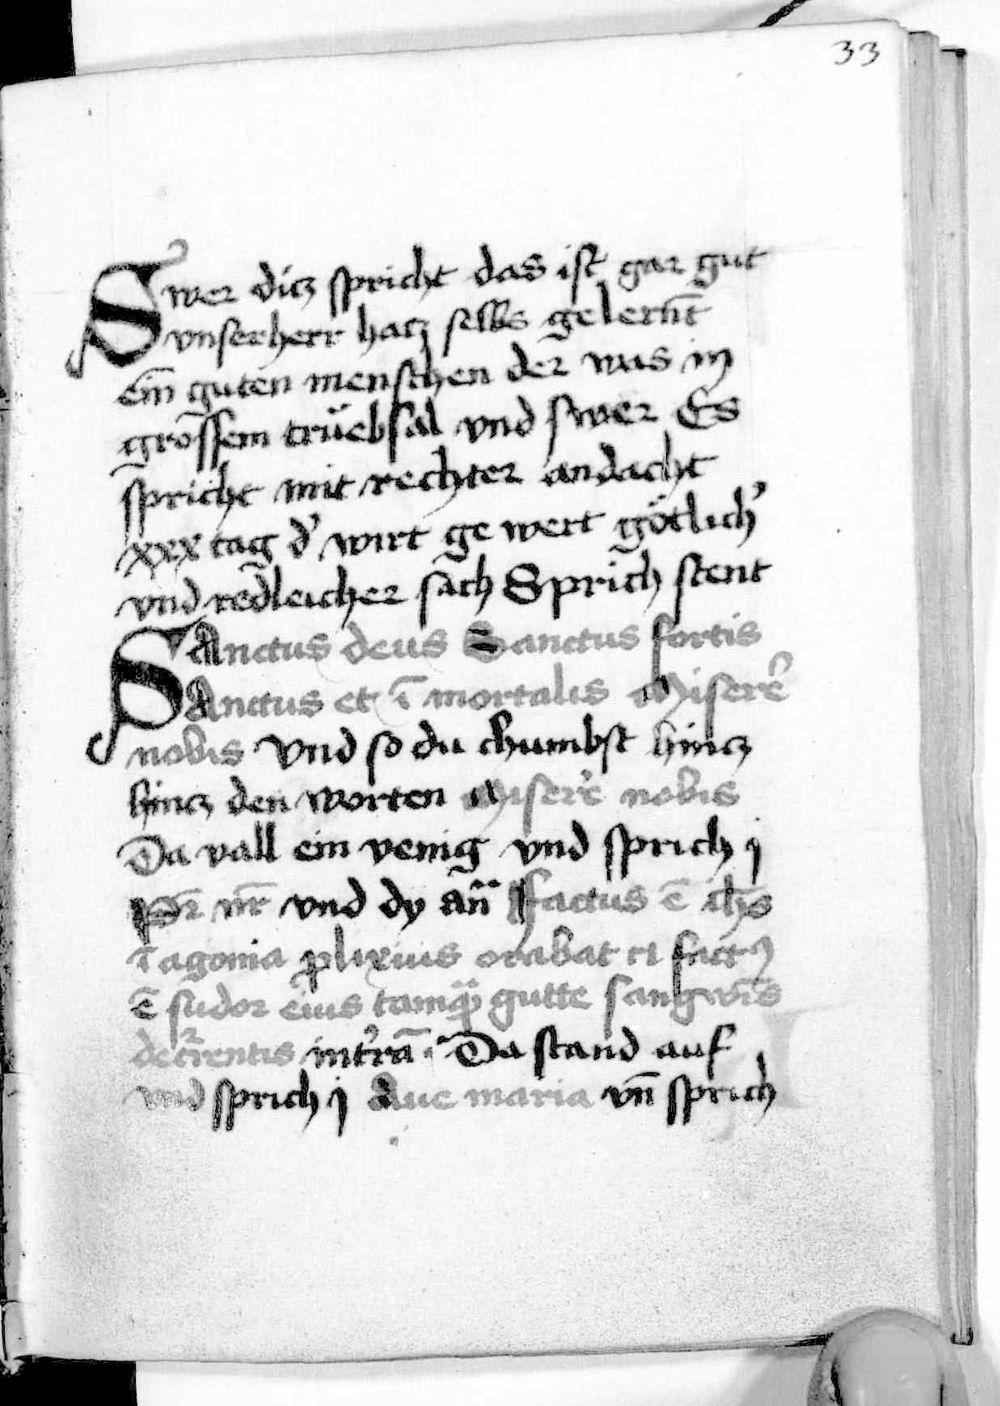 33
Swer dicz spricht das ist gar gut
vnserherr hacz selbs gelernt̄
eim̄ guten menschen der was in
grossem trüebsal vnd swer Es
spricht mit rechter andacht
xxx tag d' wirt ge wert götlich'
vnd redleicher sach Sprich stent
SAnctus deus Sanctus fortis
SAnctus et ī mortalis Miser'e
nobis Vnd so du chumbst hincz
hincz den worten Miser'e nobis
Da vall ein venig vnd sprich j
Pr̄ nr̄ vnd dy an̄ ffactus ē ih̄s
ī agonia ꝓlixius orabat et factꝰ
ē sudor eius tamq̄ꝫ gutte sangwīs
decr̄rentis int'rā · Da stand auf
vnd sprich j Aue maria vn̄ sprich